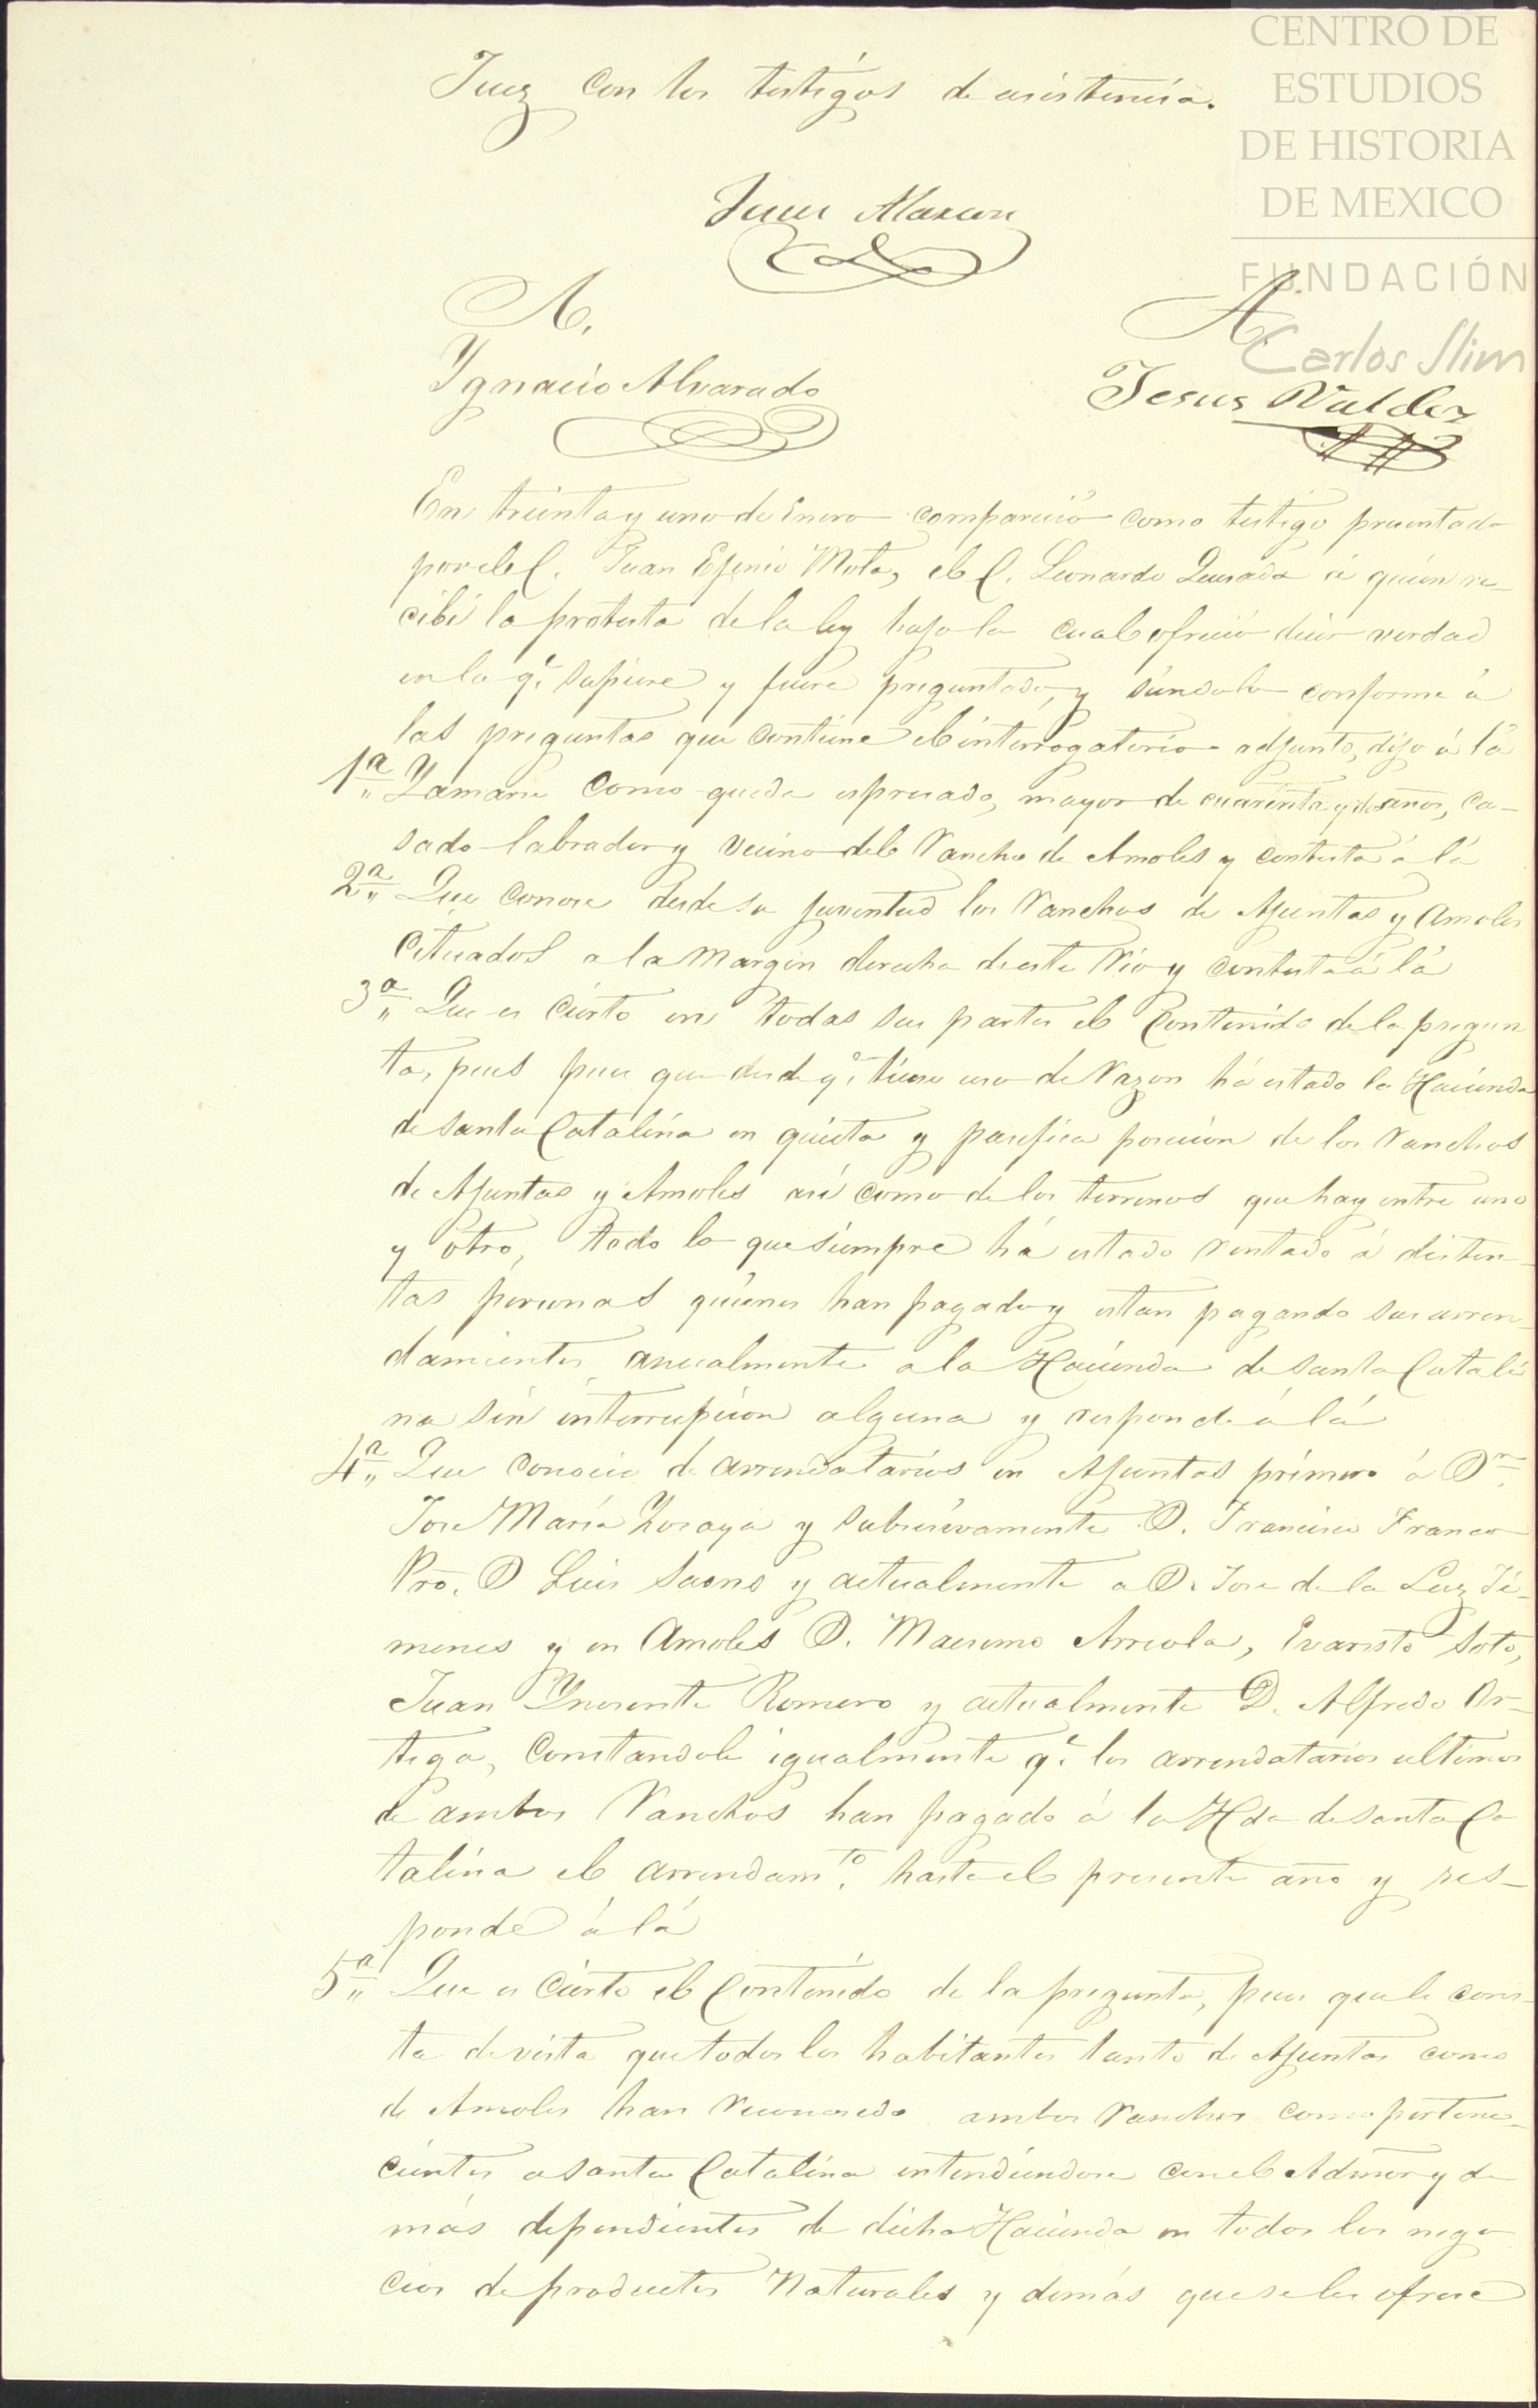 CENTRO DE
ESTUDIOS
DE HISTORIA
DE MEXICO
FUNDACIÓN
Carlos Slim
Juez con los testigos de asistencia.
Juan Alarcon
A.
A.
Ygnacio Alvarado
Jesus Valdez
En treinta y uno de Enero compareció como testigo presentado
por el C. Juan Efenio Mota, el C. Leonardo Quesada á quien re-
cibí la protesta de la ley bajo la cual ofreció decir verdad
en lo q.e supiere y fuere preguntado, y siendolo conforme á
las preguntas que contiene el interrogatorio adjunto, dijo á la
1a Llamarse como queda espresado, mayor de cuarenta y dos años, ca-
sado labrador y vecino del Rancho de Amoles y contesta á la
2a Que conoce desde su juventud los Ranchos de Ajuntas y Amoles
cituados a la margen derecha de este Rio y contesta á la
3a Que es cierto en todas sus partes el contenido de la pregun
ta, pues que desde q.e tiene uso de razon há estado la Hacienda
de Santa Catalina en quieta y pacifica posecion de los Ranchos
de Ajuntas y Amoles asi como de los terrenos que hay entre uno
y otro, todo lo que siempre há estado rentado á distin-
tas personas quienes han pagado y estan pagando sus arren-
damientos anualmente a la Hacienda de Santa Catali
na sin interrupcion alguna y responde á la
4a Que conocio de arrendatarios en Ajuntas primero á Dn.
Jose Maria Loraya y subcesivamente D. Francisco Franco
Pro. D Luis Saens y actualmente a D. Jose de la Luz Ji-
menes y en Amoles D. Macsimo Arreola, Evaristo Soto,
Juan Ynosente Romero y actualmente D. Alfredo Or-
tega, constandole igualmente q.e los arrendatarios ultimos
de ambos Ranchos han pagado á la Hda de Santa Ca
talina el arrendam.to hasta el presente año y res-
ponde á la
5a Que es cierto el contenido de la pregunta, pues que le cons-
ta de vista que todos los habitantes tanto de Ajuntas como
de Amoles han reconosido ambos Ranchos como pertene-
cientes a Santa Catalina entendiendose con el Admor y de
más dependientes de dicha Hacienda en todos los nego
cios de productos Naturales y demás que se les ofrece